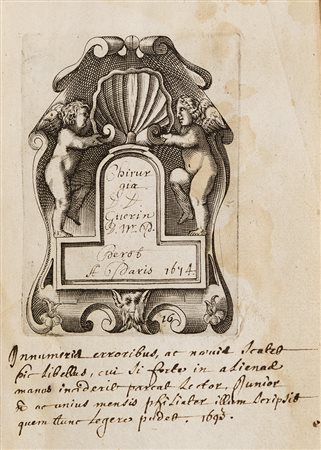 Chirur
gia
D.
Guerin
D. M. P.
Perot
A Paris 1674
16
Innumeris erroribus, ac novis scatet
hic libellus, cui si forte in alienas
manus inciderit parcat Lector, Junior
& ac unius mensis philiater illum scripsit
quem nunc Legere pudet. 1695.